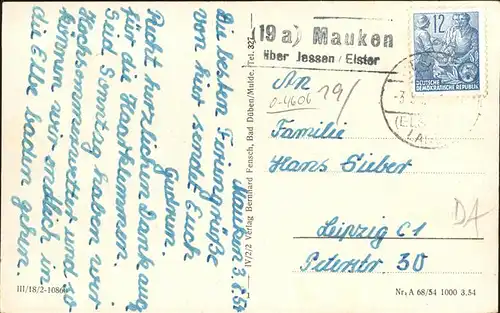 Mauken 3.8.54
Die besten Feriengrüße
von hier sendet Euch
Gudrun.
Recht herzlichen Dank auch
für die Haarklammern.
Seit Sonntag haben wir
Hochsommerwetter und so
können wir endlich in
die Elbe baden gehen.
III/18/2-1086
IV/2/2 Verlag Bernhard Fensch, Bad Düben/Mulde, Tel. 327
(19 a) Mauken
über Jessen/Elster
12
DEUTSCHE
DEMOKRATISCHE REPUBLIK
An
0-4606
19/
Familie
Hans Sieber
Leipzig C1
Peterstr 30
DA
Nr. A 68/54 1000 3.54